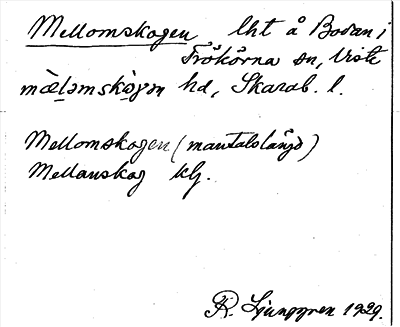 Mellomskogen lht å Bosan i
Friökörna sn, Viste
mæ̀l̥əmskò̥gən hd, Skarab. l.
Mellomskogen (mantalslängd)
Mellanskog klj.
R. Ljunggren 1929.